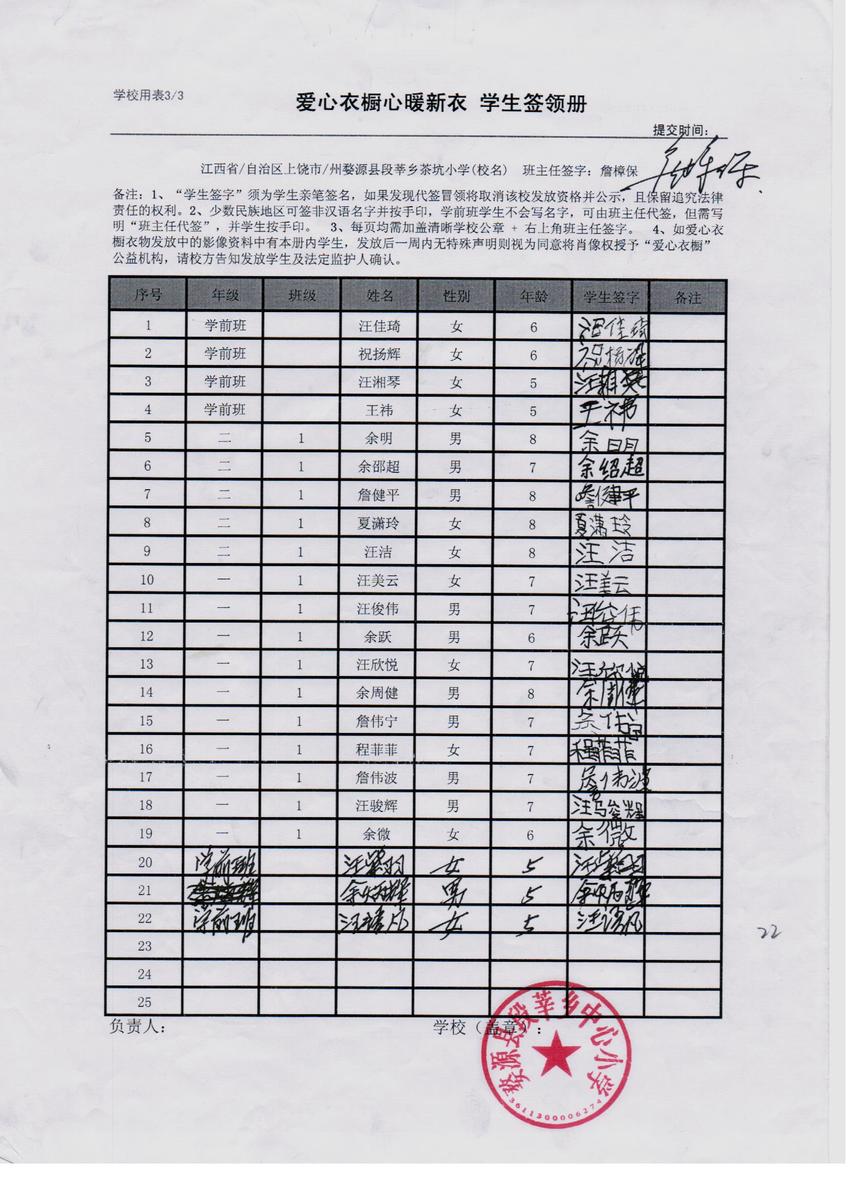 学校用表3/3
爱心衣橱心暖新衣 学生签领册
提交时间:
江西省/自治区上饶市/州婺源县段莘乡茶坑小学(校名) 班主任签字: 詹樟保
备注: 1、“学生签字”须为学生亲笔签名, 如果发现代签冒领将取消该校发放资格并公示, 且保留追究法律
责任的权利。2、少数民族地区可签非汉语名字并按手印, 学前班学生不会写名字, 可由班主任代签, 但需写
明“班主任代签”, 并学生按手印。 3、每页均需加盖清晰学校公章 + 右上角班主任签字。 4、如爱心衣
橱衣物发放中的影像资料中有本册内学生, 发放后一周内无特殊声明则视为同意将肖像权授予“爱心衣橱”
公益机构, 请校方告知发放学生及法定监护人确认。
序号 年级 班级 姓名 性别 年龄 学生签字 备注
1 学前班 汪佳琦 女 6 汪佳琦
2 学前班 祝扬辉 女 6 祝扬辉
3 学前班 汪湘琴 女 5 汪湘琴
4 学前班 王祎 女 5 王祎
5 二 1 余明 男 8 余明
6 二 1 余邵超 男 7 余绍超
7 二 1 詹健平 男 8 詹健平
8 二 1 夏潇玲 女 8 夏潇玲
9 二 1 汪洁 女 8 汪洁
10 一 1 汪美云 女 7 汪美云
11 一 1 汪俊伟 男 7 汪俊伟
12 一 1 余跃 男 6 余跃
13 一 1 汪欣悦 女 7
14 一 1 余周健 男 8 余周健
15 一 1 詹伟宁 男 7
16 一 1 程菲菲 女 7 程菲菲
17 一 1 詹伟波 男 7
18 一 1 汪骏辉 男 7 汪骏辉
19 一 1 余微 女 6 余微
20 学前班 女 5
21 男 5
22 学前班 女 5
23
24
25
22
负责人: 学校（盖章）:
婺源县段莘乡中心小学
3611300006274